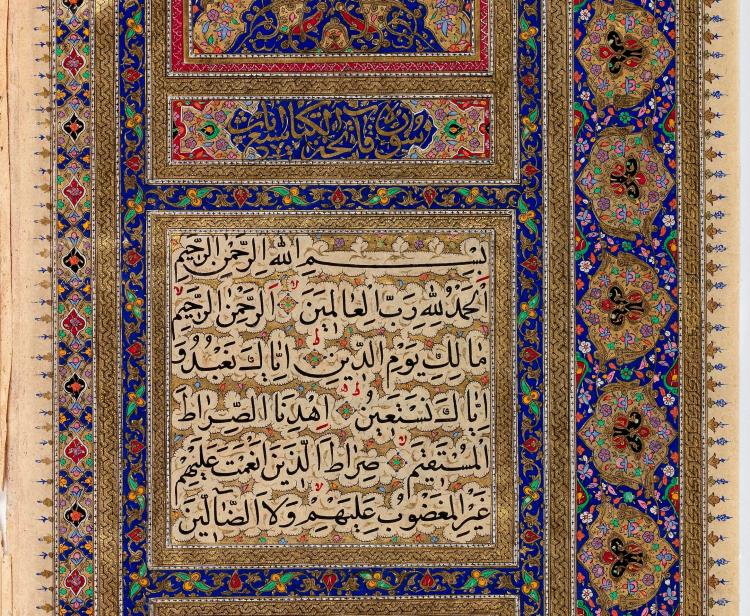 سورة فاتحة الكتاب
بِسْمِ اللهِ الرَّحْمٰنِ الرَّحِيْمِ
اَلْحَمْدُ لِلّٰهِ رَبِّ الْعالَمِيْنَ الرَّحْمٰنِ الرَّحِيْمِ
مالِكِ يَوْمِ الدِّيْنِ اِيّاكَ نَعْبُدُ وَ
اِيّاكَ نَسْتَعِيْنُ اِهْدِنَا الصِّراطَ
الْمُسْتَقِيْمَ صِراطَ الَّذِيْنَ اَنْعَمْتَ عَلَيْهِمْ
غَيْرِ الْمَغْضُوْبِ عَلَيْهِمْ وَلَا الضّآلِّيْنَ